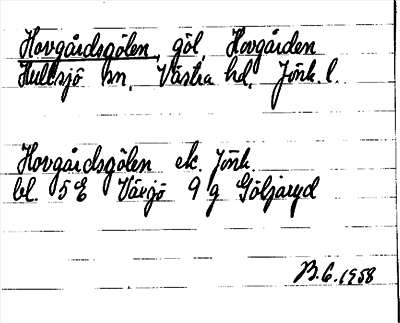 Hovgårdsgölen, göl, Hovgården
Hultsjö sn, Västra hd, Jönk. l.
Hovgårdsgölen ek. Jönk.
bl. 5E Växjö 9 g Göljaryd
B.G. 1958